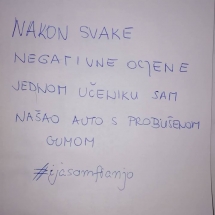 NAKON SVAKE
NEGATIVNE OCJENE
JEDNOM UČENIKU SAM
NAŠAO AUTO S PROBUŠENOM
GUMOM
#ijasamftanjo